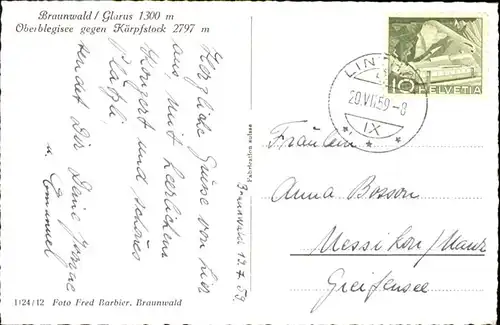 Braunwald / Glarus 1300 m
Oberblegisee gegen Kärpfstock 2797 m
Herzliche Grüsse von hier
aus, mit herrlichem
Konzert und schönes
Plätzli
sendet Dir Deine
u. Emanuel
Braunwald 13.7.59
Fabrication suisse
1/24/12 Foto Fred Barbier, Braunwald
LINTHAL
20.VII.59-8
IX
10
HELVETIA
Fräulein
Anna Bosson
Messikon/Maur
Greifensee